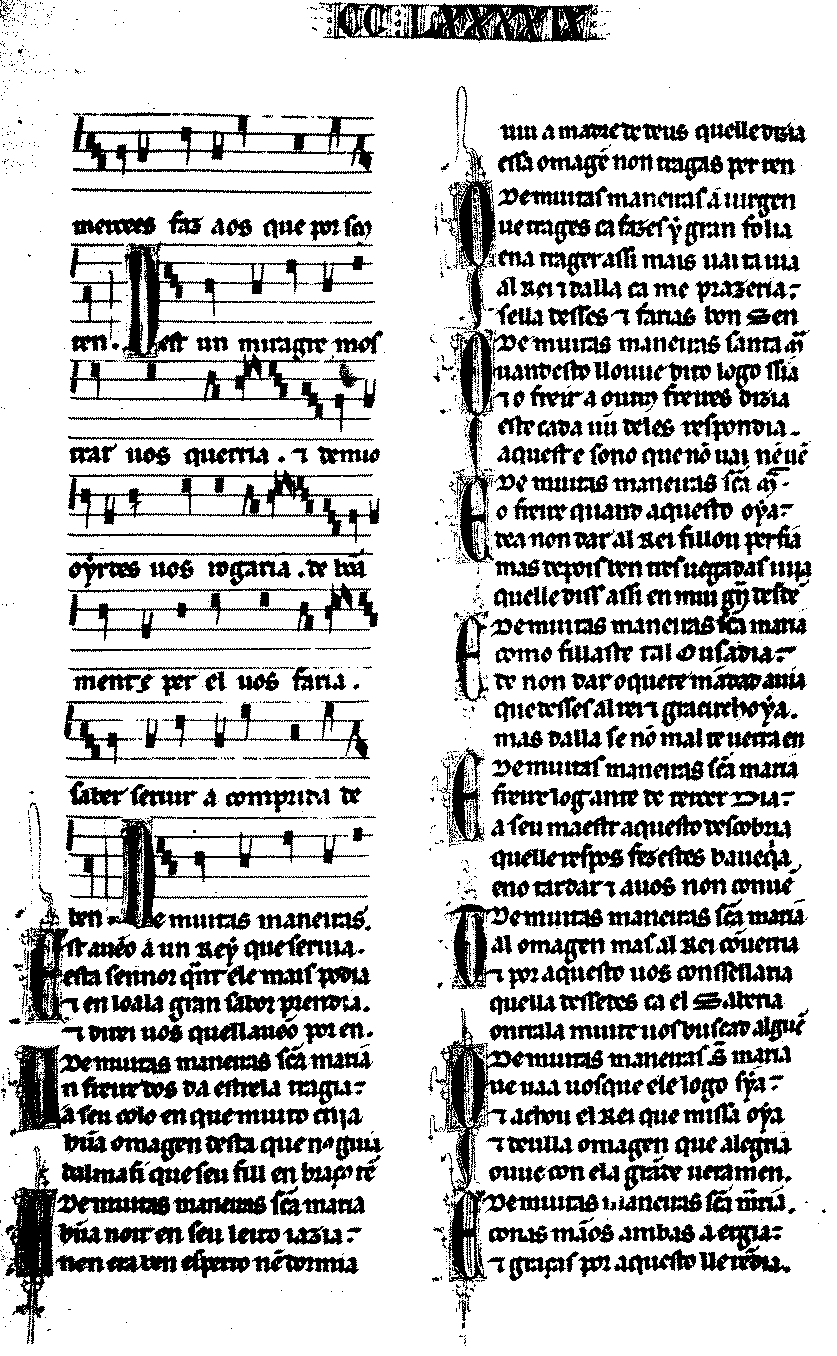 CCLXXXXIX
merçees faz aos que por sỹ
ten. D est un miragre mos
trar uos querria. ⁊ de muo
oyrdes uos rogaria. de bõa
mente per el uos faria.
saber seruir a comprida de
ben. De muitas maneiras.
Est aueo a un Rey que seruia.
esta sennor qñt ele mais podia
⁊ en loala gran sabor prendia.
⁊ direi uos quell aueo por en.
De muitas maneiras sc̃a maria
Un freire dos da estrela tragia:
a seu colo en que muito criia
hũa omagen desta que nos guia
dalmafi que seu fill en braço tẽ
De muitas maneiras sc̃a maria
hũa noit en seu leito iazia:
nen era ben esperto nẽ dormia
uiu a madre de deus quelle dizia
essa omagẽ non tragas per ren
De muitas maneiras a uirgen
Que trages ca fazes y̑ gran folia
ena trager assi mais uai ta uia
al Rei ⁊ dalla ca me prazeria:
sella desses ⁊ farias bon Sen
De muitas maneiras santa m̃
Quand esto llouue dito logo ssia
⁊ o freir a outros freires dizia
este cada uũ deles respondia.
aqueste sono que nõ uai nẽ uẽ
De muitas maneiras sc̃a m̃.
E o freire quand aquesto oya:
tea non dar al Rei fillou perfia
mas depois ben tres uegadas uiia
quelle diss assi en mui gñ desdẽ
De muitas maneiras sc̃a maria
E como fillaste tal Ousadia:
de non dar o que te mãdad auia
que desses al rei ⁊ gracircho ya.
mas dalla se nõ mal te uerra en
De muitas maneiras sc̃a maria
E freire log ante de tercer Dia:
a seu maestr aquesto descobria
quelle respos fezestes bauequia
eno tardar ⁊ a uos non conuẽ
De muitas maneiras sc̃a maria
D al omagen mas al Rei cõuerria
⁊ por aquesto uos conssellaria
quella dessedes ca el Saberia
onrrala muit e uos buscad alguẽ
De muitas maneiras S̃ maria
Que uaa uosque ele logo sya:
⁊ achou el Rei que missa oya
⁊ deulla omagen que alegria
ouue con ela grãde ueramen.
De muitas maneiras sc̃a mr̃ia.
E conas mãos ambas a ergia:
⁊ graças por aquesto lle rẽdia.